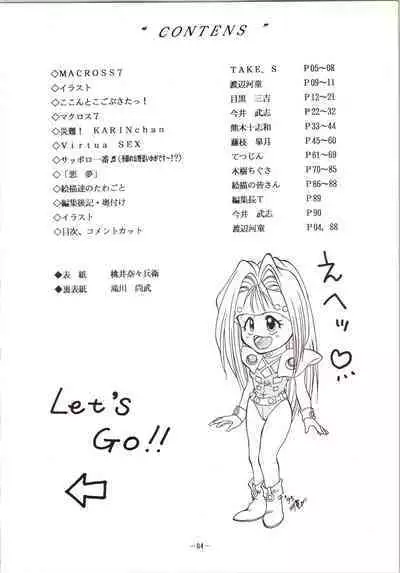 " CONTENS "
◇MACROSS7 TAKE．S P05～08
◇イラスト 渡辺河童 P09～11
◇ここんとこごぶさたっ！ 目黒 三吉 P12～21
◇マクロス7 今井 武志 P22～32
◇災難！ KARINchan 熊木十志和 P33～44
◇Virtua SEX 藤枝 皐月 P45～60
◇サッポロ一番♬ てつじん P61～69
◇「悪 夢」 水樹ちぐさ P70～85
◇絵描達のたわごと 絵描の皆さん P86～88
◇編集後記・奥付け 編集長T P89
◇イラスト 今井 武志 P90
◇目次、コメントカット 渡辺河童 P04, 88
◆表 紙 桃井奈々兵衛
◆裏表紙 滝川 尚武
えへッ♡
Let's
Go!!
－04－